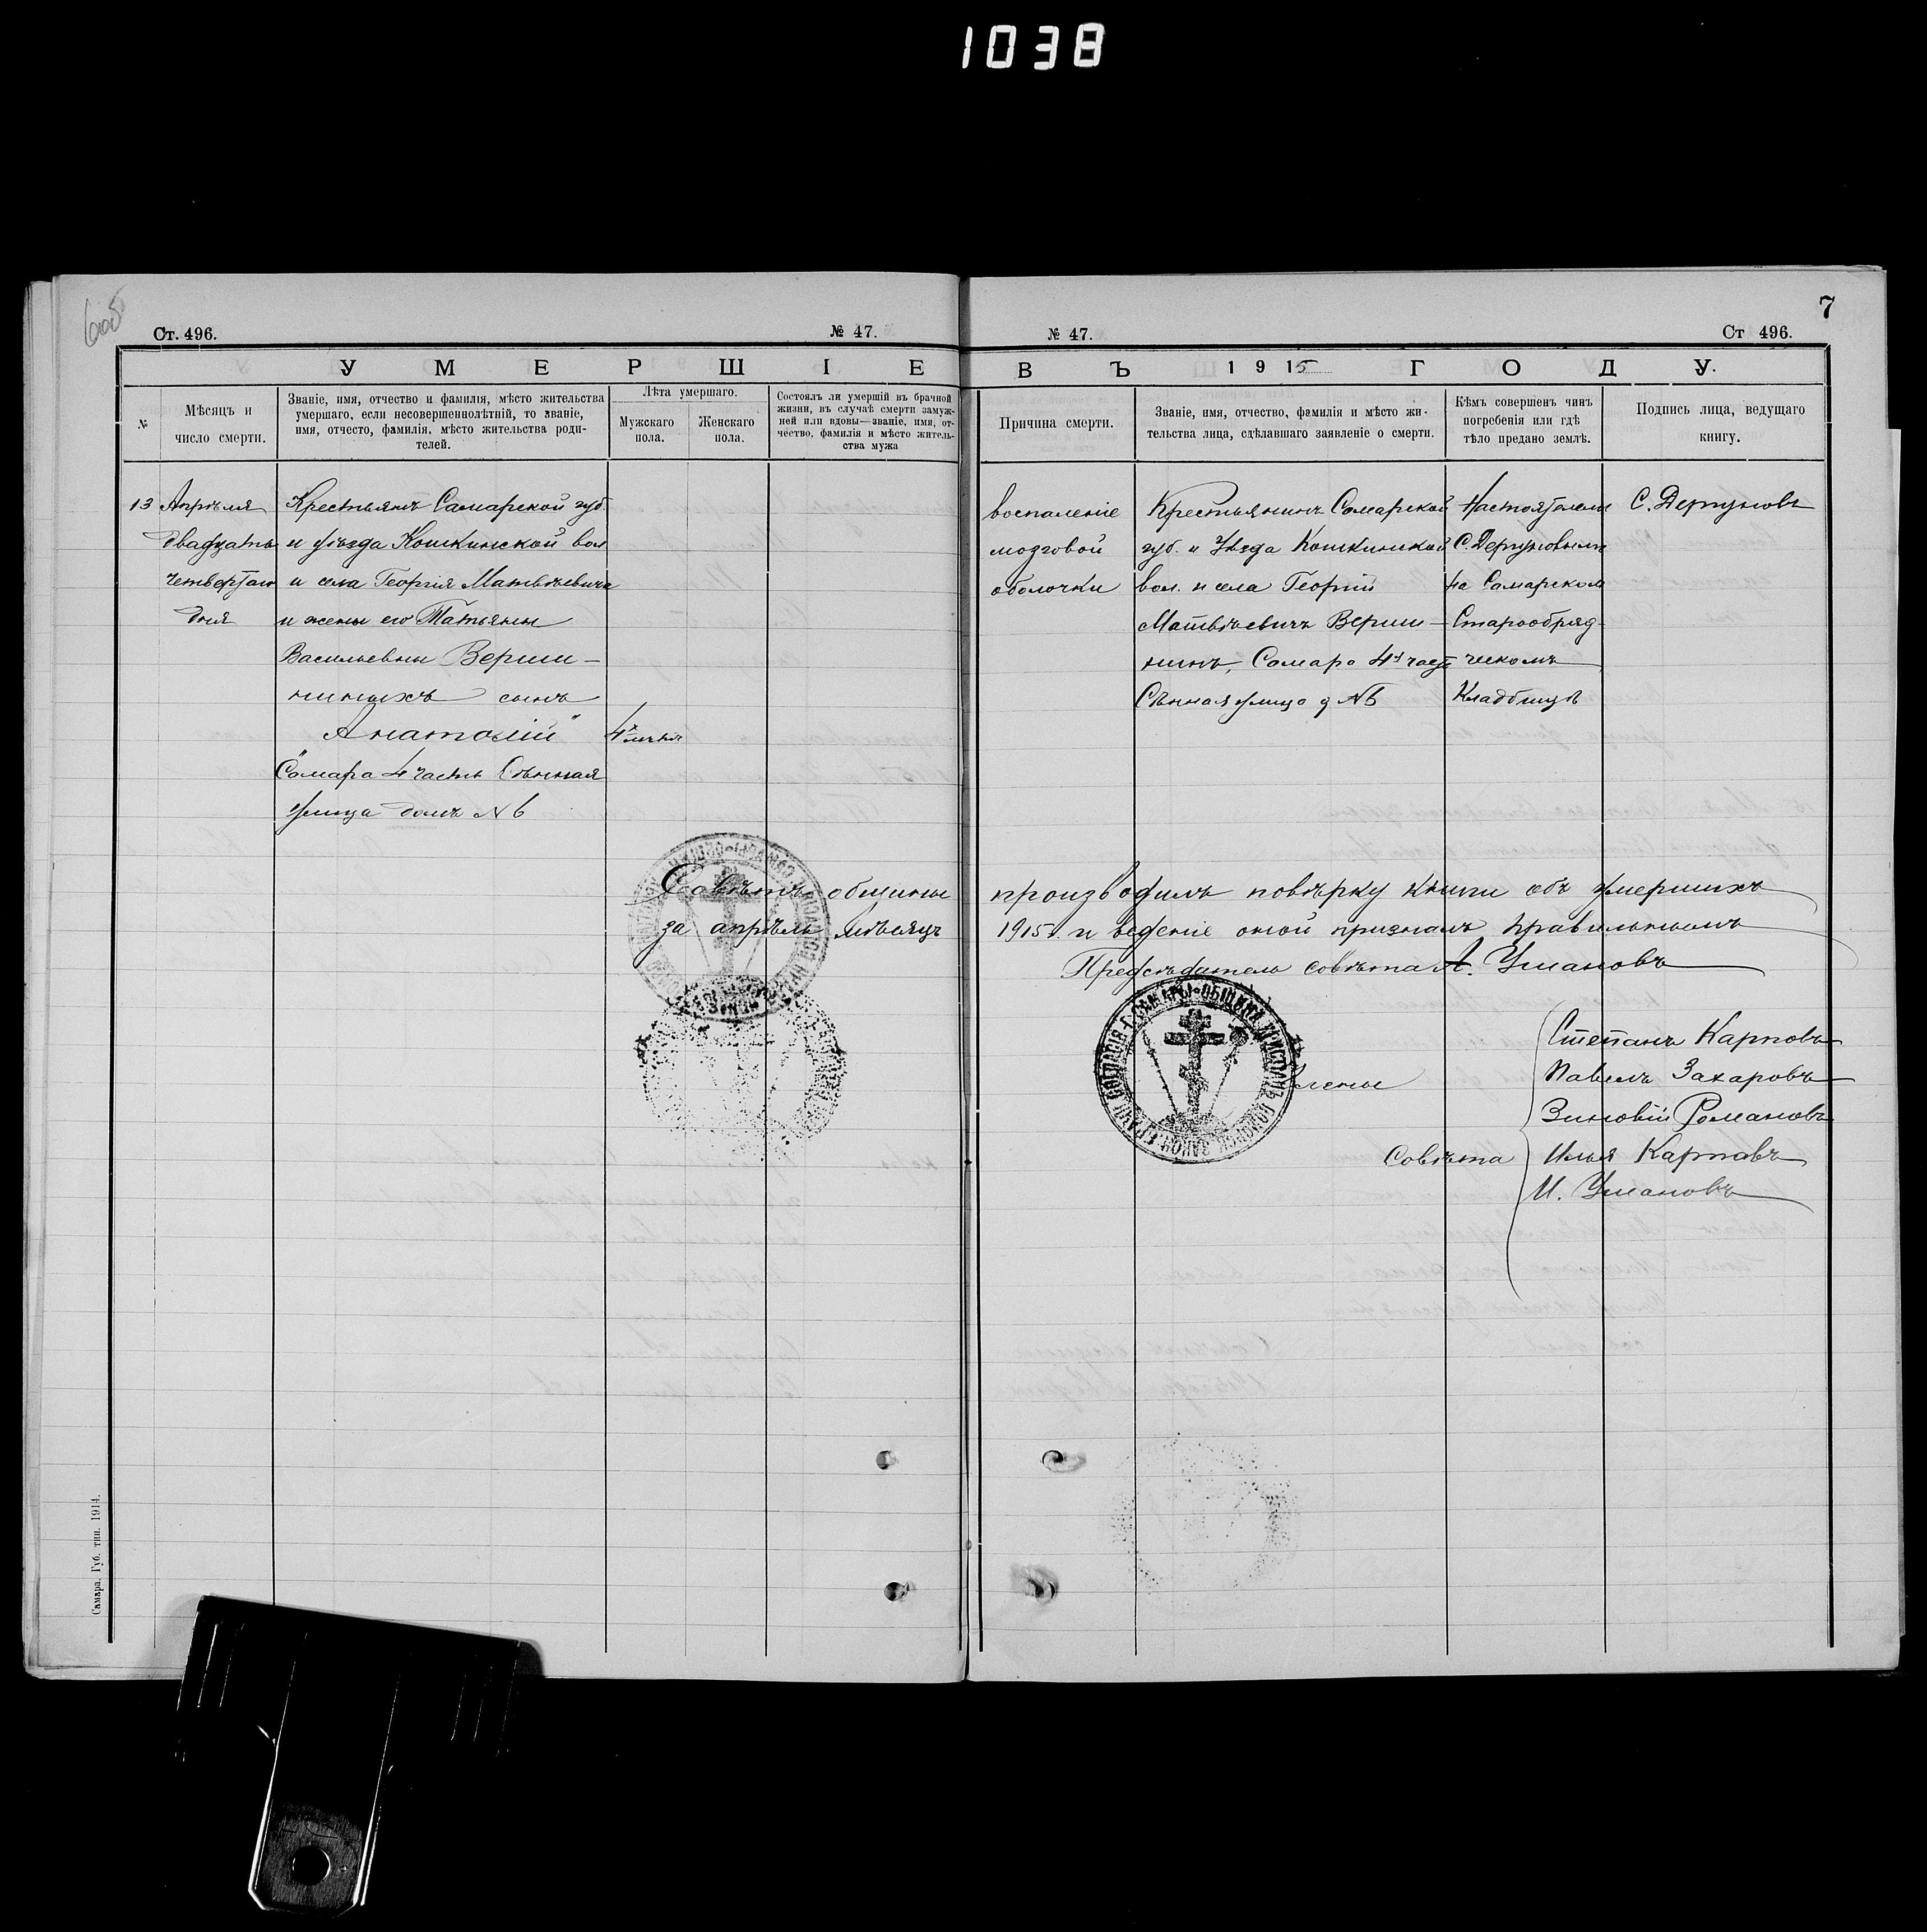 1038
7
Ст. 496.
№ 47.
№ 47.
Ст 496.
УМЕРШІЕ
ВЪ 1915 ГОДУ.
№
Мѣсяцъ и
число смерти.
Званіе, имя, отчество и фамилія, мѣсто жительства
умершаго, если несовершеннолѣтній, то званіе,
имя, отчесто, фамилія, мѣсто жительства роди-
телей.
Лѣта умершаго.
Мужскаго
пола.
Женскаго
пола.
Состоялъ ли умершій въ брачной
жизни, въ случаѣ смерти замуж-
ней или вдовы—званіе, имя, от-
чество, фамилія и мѣсто житель-
ства мужа
Причина смерти.
Званіе, имя, отчество, фамилія и мѣсто жи-
тельства лица, сдѣлавшаго заявленіе о смерти.
Кѣмъ совершенъ чинъ
погребенія или гдѣ
тѣло предано землѣ.
Подпись лица, ведущаго
книгу.
13
Апрѣля
двадцать
четвертаго
дня
Крестьянъ Самарской губ.
и уѣзда Кошкинской вол
и села Георгія Матвѣевича
и жены его Татьяны
Васильевны Верши-
ниныхъ сынъ
"Анатолій"
Самара 4 часть Сѣнная
улица домъ № 6
4х лѣтъ
воспаленіе
мозговой
оболочки
Крестьянинъ Самарской
губ. и Уѣзда Кошкинской
вол. и села Георгій
Матвѣевичъ Верши-
нинъ, Самара 4я часть
Сѣнная улица д № 6
Настоятелем
С. Дергуновымъ
на Самарском
Старообряд-
ческомъ
Кладбищѣ
С. Дергуновъ
Совѣтъ общины производилъ повѣрку книги объ умершихъ
за апрѣль мѣсяцъ 1915 г. и веденіе оной призналъ правильнымъ
Предсѣдатель совѣта А. Ушановъ
члены
Совѣта
Степанъ Карповъ
Павелъ Захаровъ
Зиновій Романовъ
Илья Карповъ
И. Ушановъ
Самара. Губ. тип. 1914.